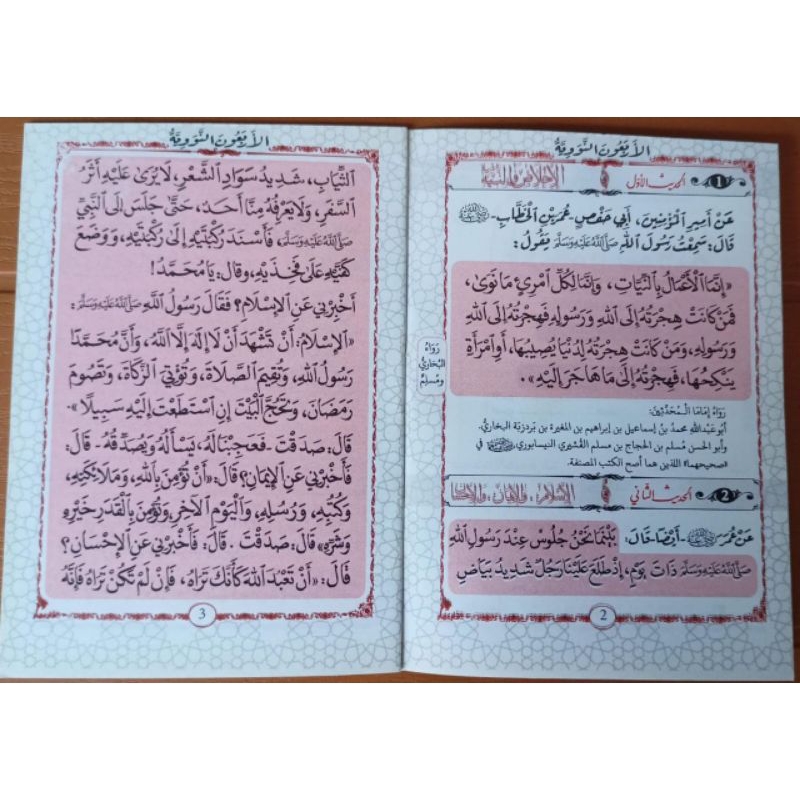 الأربعون النووية
1 الحديث الأول الإخلاص والنية
عَنْ أَمِيرِ الْمُؤْمِنِينَ، أَبِي حَفْصٍ عُمَرَ بْنِ الْخَطَّابِ - رضي الله عنه -
قَالَ: سَمِعْتُ رَسُولَ اللهِ صَلَّى اللهُ عَلَيْهِ وَسَلَّمَ يَقُولُ:
«إِنَّمَا الْأَعْمَالُ بِالنِّيَّاتِ، وَإِنَّمَا لِكُلِّ امْرِئٍ مَا نَوَى،
فَمَنْ كَانَتْ هِجْرَتُهُ إِلَى اللهِ وَرَسُولِهِ فَهِجْرَتُهُ إِلَى اللهِ
وَرَسُولِهِ، وَمَنْ كَانَتْ هِجْرَتُهُ لِدُنْيَا يُصِيبُهَا، أَوِ امْرَأَةٍ
يَنْكِحُهَا، فَهِجْرَتُهُ إِلَى مَا هَاجَرَ إِلَيْهِ».
رَوَاهُ
البُخَارِيُّ
وَمُسْلِمٌ
رَوَاهُ إِمَامَا الْمُحَدِّثِينَ:
أبو عبدالله محمد بن إسماعيل بن إبراهيم بن المغيرة بن بَردِزبَة البخاريُّ،
وأبو الحسن مُسلم بن الحجاج بن مسلم القُشيري النيسابوري، رضي الله عنهما في
«صحيحيهما» اللذين هما أصح الكتب المصنفة.
2 الحديث الثاني الإسلام والإيمان والإحسان
عَنْ عُمَرَ رضي الله عنه - أَيْضًا - قَالَ: بَيْنَمَا نَحْنُ جُلُوسٌ عِنْدَ رَسُولِ اللهِ
صَلَّى اللهُ عَلَيْهِ وَسَلَّمَ ذَاتَ يَوْمٍ، إِذْ طَلَعَ عَلَيْنَا رَجُلٌ شَدِيدُ بَيَاضِ
2
الأربعون النووية
الثِّيَابِ، شَدِيدُ سَوَادِ الشَّعْرِ، لَا يُرَى عَلَيْهِ أَثَرُ
السَّفَرِ، وَلَا يَعْرِفُهُ مِنَّا أَحَدٌ، حَتَّى جَلَسَ إِلَى النَّبِيِّ
صَلَّى اللهُ عَلَيْهِ وَسَلَّمَ، فَأَسْنَدَ رُكْبَتَيْهِ إِلَى رُكْبَتَيْهِ، وَوَضَعَ
كَفَّيْهِ عَلَى فَخِذَيْهِ، وقال: يَا مُحَمَّدُ!
أَخْبِرْنِي عَنِ الْإِسْلَامِ؟ فَقَالَ رَسُولُ اللهِ صَلَّى اللهُ عَلَيْهِ وَسَلَّمَ:
«الْإِسْلَامُ: أَنْ تَشْهَدَ أَنْ لَا إِلَهَ إِلَّا اللهُ، وَأَنَّ مُحَمَّدًا
رَسُولُ اللهِ، وَتُقِيمَ الصَّلَاةَ، وَتُؤْتِيَ الزَّكَاةَ، وَتَصُومَ
رَمَضَانَ، وَتَحُجَّ الْبَيْتَ إِنِ اسْتَطَعْتَ إِلَيْهِ سَبِيلًا».
قَالَ: صَدَقْتَ - فَعَجِبْنَا لَهُ، يَسْأَلُهُ وَيُصَدِّقُهُ - قَالَ:
فَأَخْبِرْنِي عَنِ الْإِيمَانِ؟ قَالَ: «أَنْ تُؤْمِنَ بِاللهِ، وَمَلَائِكَتِهِ،
وَكُتُبِهِ، وَرُسُلِهِ، وَالْيَوْمِ الْآخِرِ، وَتُؤْمِنَ بِالْقَدَرِ خَيْرِهِ
وَشَرِّهِ» قَالَ: صَدَقْتَ. قَالَ: فَأَخْبِرْنِي عَنِ الْإِحْسَانِ؟
قَالَ: «أَنْ تَعْبُدَ اللهَ كَأَنَّكَ تَرَاهُ، فَإِنْ لَمْ تَكُنْ تَرَاهُ فَإِنَّهُ
3